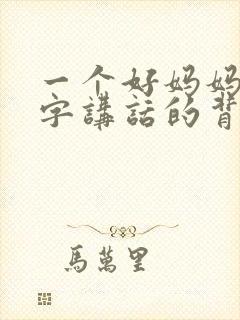 一个好妈妈
字講話的背
馬萬里